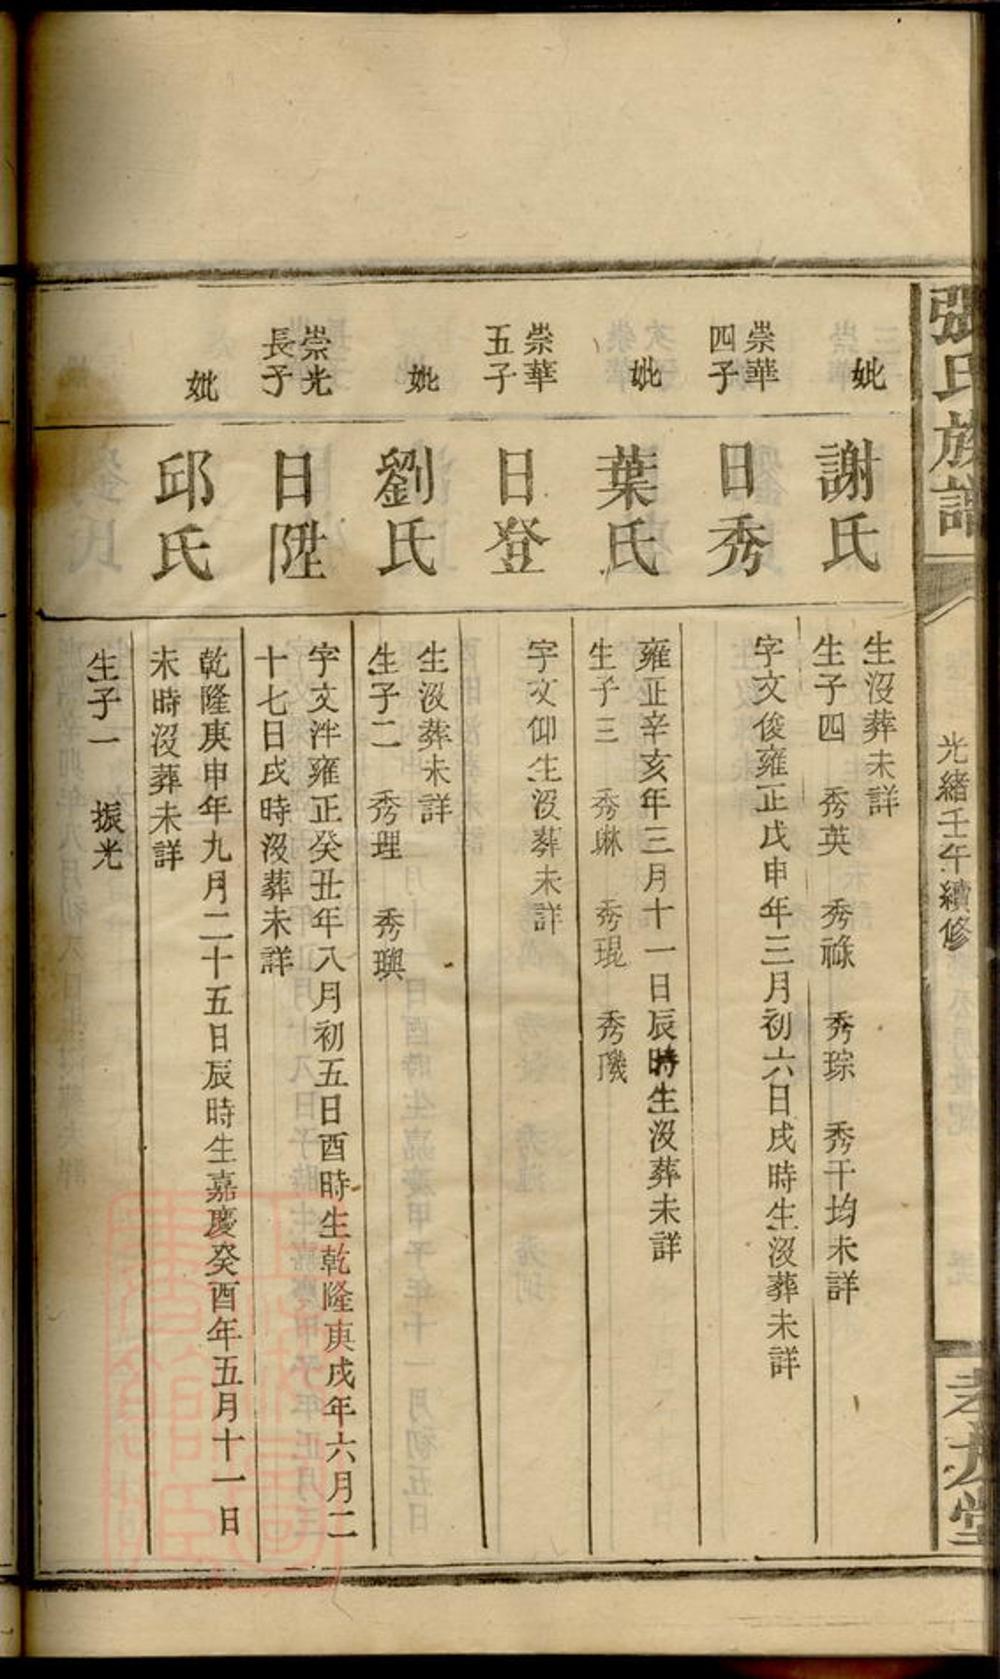 張氏族譜
光緒壬午續修
孝友堂
妣
謝氏
生沒葬未詳
生子四 秀英 秀祿 秀琮 秀干均未詳
崇華
四子
日秀
字文俊雍正戊申年三月初六日戌時生沒葬未詳
妣
葉氏
雍正辛亥年三月十一日辰時生沒葬未詳
生子三 秀琳 秀琨 秀璣
崇華
五子
日登
字文仰生沒葬未詳
妣
劉氏
生沒葬未詳
生子二 秀理 秀璵
崇光
長子
日陞
字文泮雍正癸丑年八月初五日酉時生乾隆庚戌年六月二
十七日戌時沒葬未詳
妣
邱氏
乾隆庚申年九月二十五日辰時生嘉慶癸酉年五月十一日
未時沒葬未詳
生子一 振光